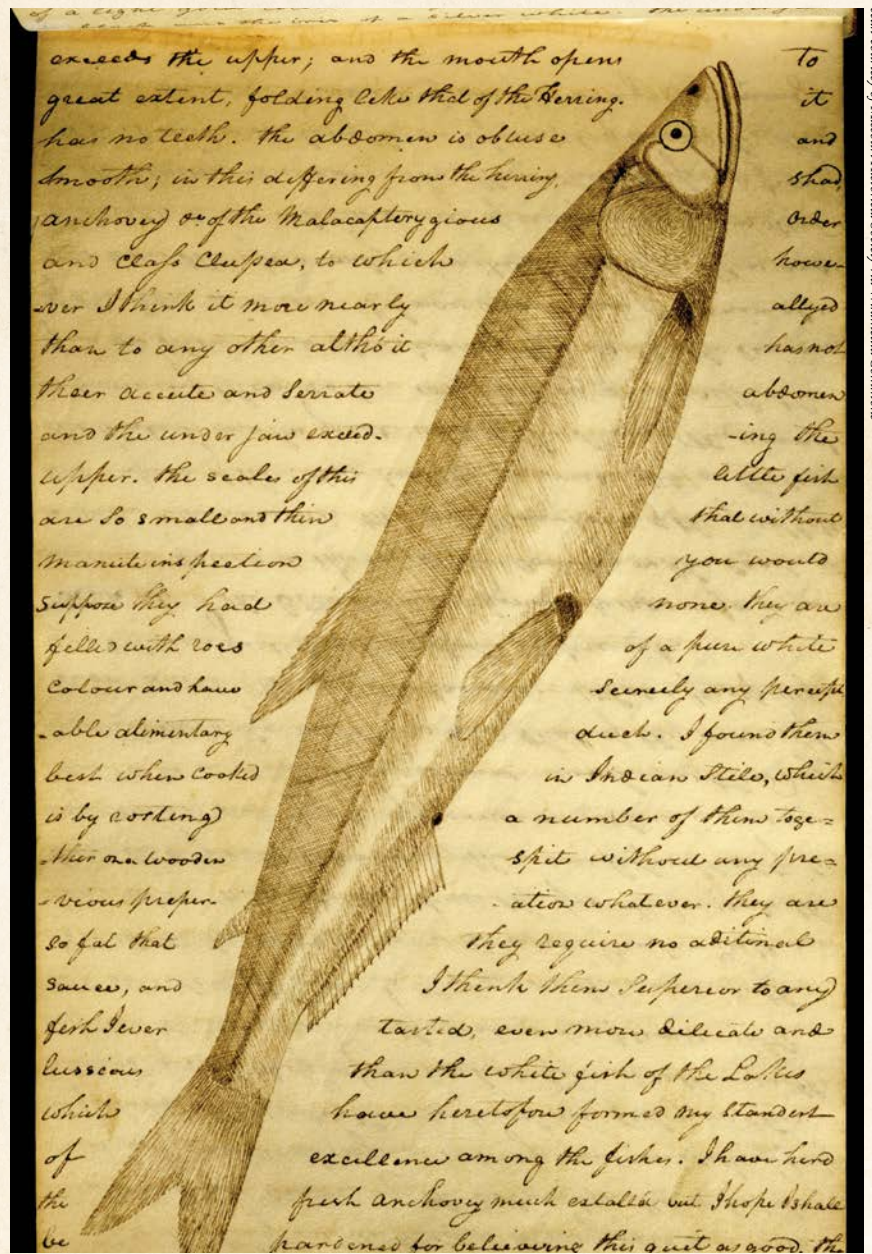 of a light
of a silver white. the under
exceeds the upper; and the mouth opens To
great extent, folding like that of the Herring. it
has no teeth. the abdomen is obtuse and
smooth; in this differing from the herring, shad,
anchovey &c of the Malacapterygious Order
and Class Clupea, to which howe-
-ver I think it more nearly allyed
than to any other altho' it has not
their accute and serrate abdomen
and the under jaw exceed- -ing the
upper. the scales of this little fish
are so small and thin that without
manute inspection you would
suppose they had none. they are
filled with roes of a pure white
colour and have scercely any percept
-able alimentary duct. I found them
best when cooked in Indian stile, which
is by rosting a number of them toge=
=ther on a wooden spit without any pre=
-vious preper- -ation whatever. they are
so fat that they require no aditinal
sauce, and I think them superior to any
fish I ever tasted, even more dilicate and
lusscious than the white fish of the Lakes
which have heretofore formed my standart
of excellence among the fishes. I have herd
the fresh anchovey much extolld but I hope I shall
be pardoned for believeing this quit as good. the